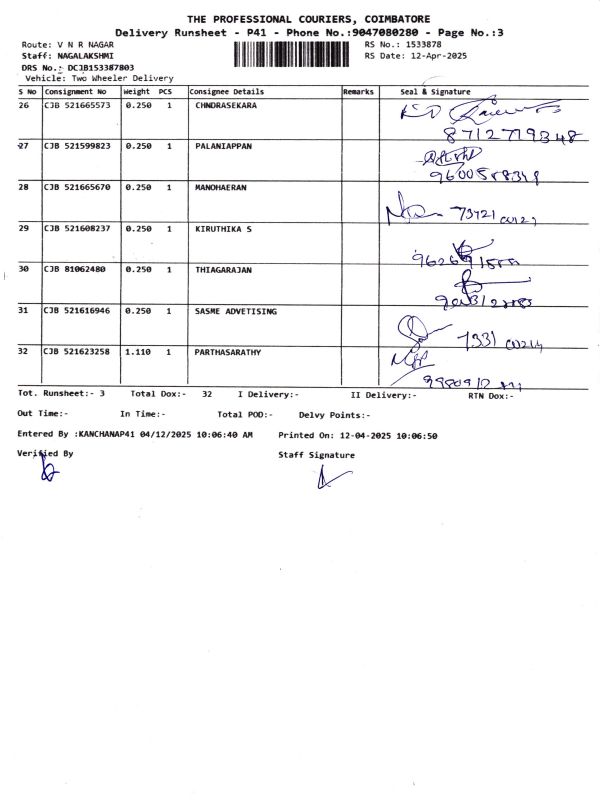 THE PROFESSIONAL COURIERS, COIMBATORE
Delivery Runsheet - P41 - Phone No.:9047080280 - Page No.:3
Route: V N R NAGAR RS No.: 1533878
Staff: NAGALAKSHMI RS Date: 12-Apr-2025
DRS No.: DCJB153387803
Vehicle: Two Wheeler Delivery
S No Consignment No Weight PCS Consignee Details Remarks Seal & Signature
26 CJB 521665573 0.250 1 CHNDRASEKARA
8712719348
27 CJB 521599823 0.250 1 PALANIAPPAN
28 CJB 521665670 0.250 1 MANOHAERAN
29 CJB 521608237 0.250 1 KIRUTHIKA S
30 CJB 81062480 0.250 1 THIAGARAJAN
31 CJB 521616946 0.250 1 SASME ADVETISING
7331
32 CJB 521623258 1.110 1 PARTHASARATHY
Tot. Runsheet:- 3 Total Dox:- 32 I Delivery:- II Delivery:- RTN Dox:-
Out Time:- In Time:- Total POD:- Delvy Points:-
Entered By :KANCHANAP41 04/12/2025 10:06:40 AM Printed On: 12-04-2025 10:06:50
Verified By Staff Signature